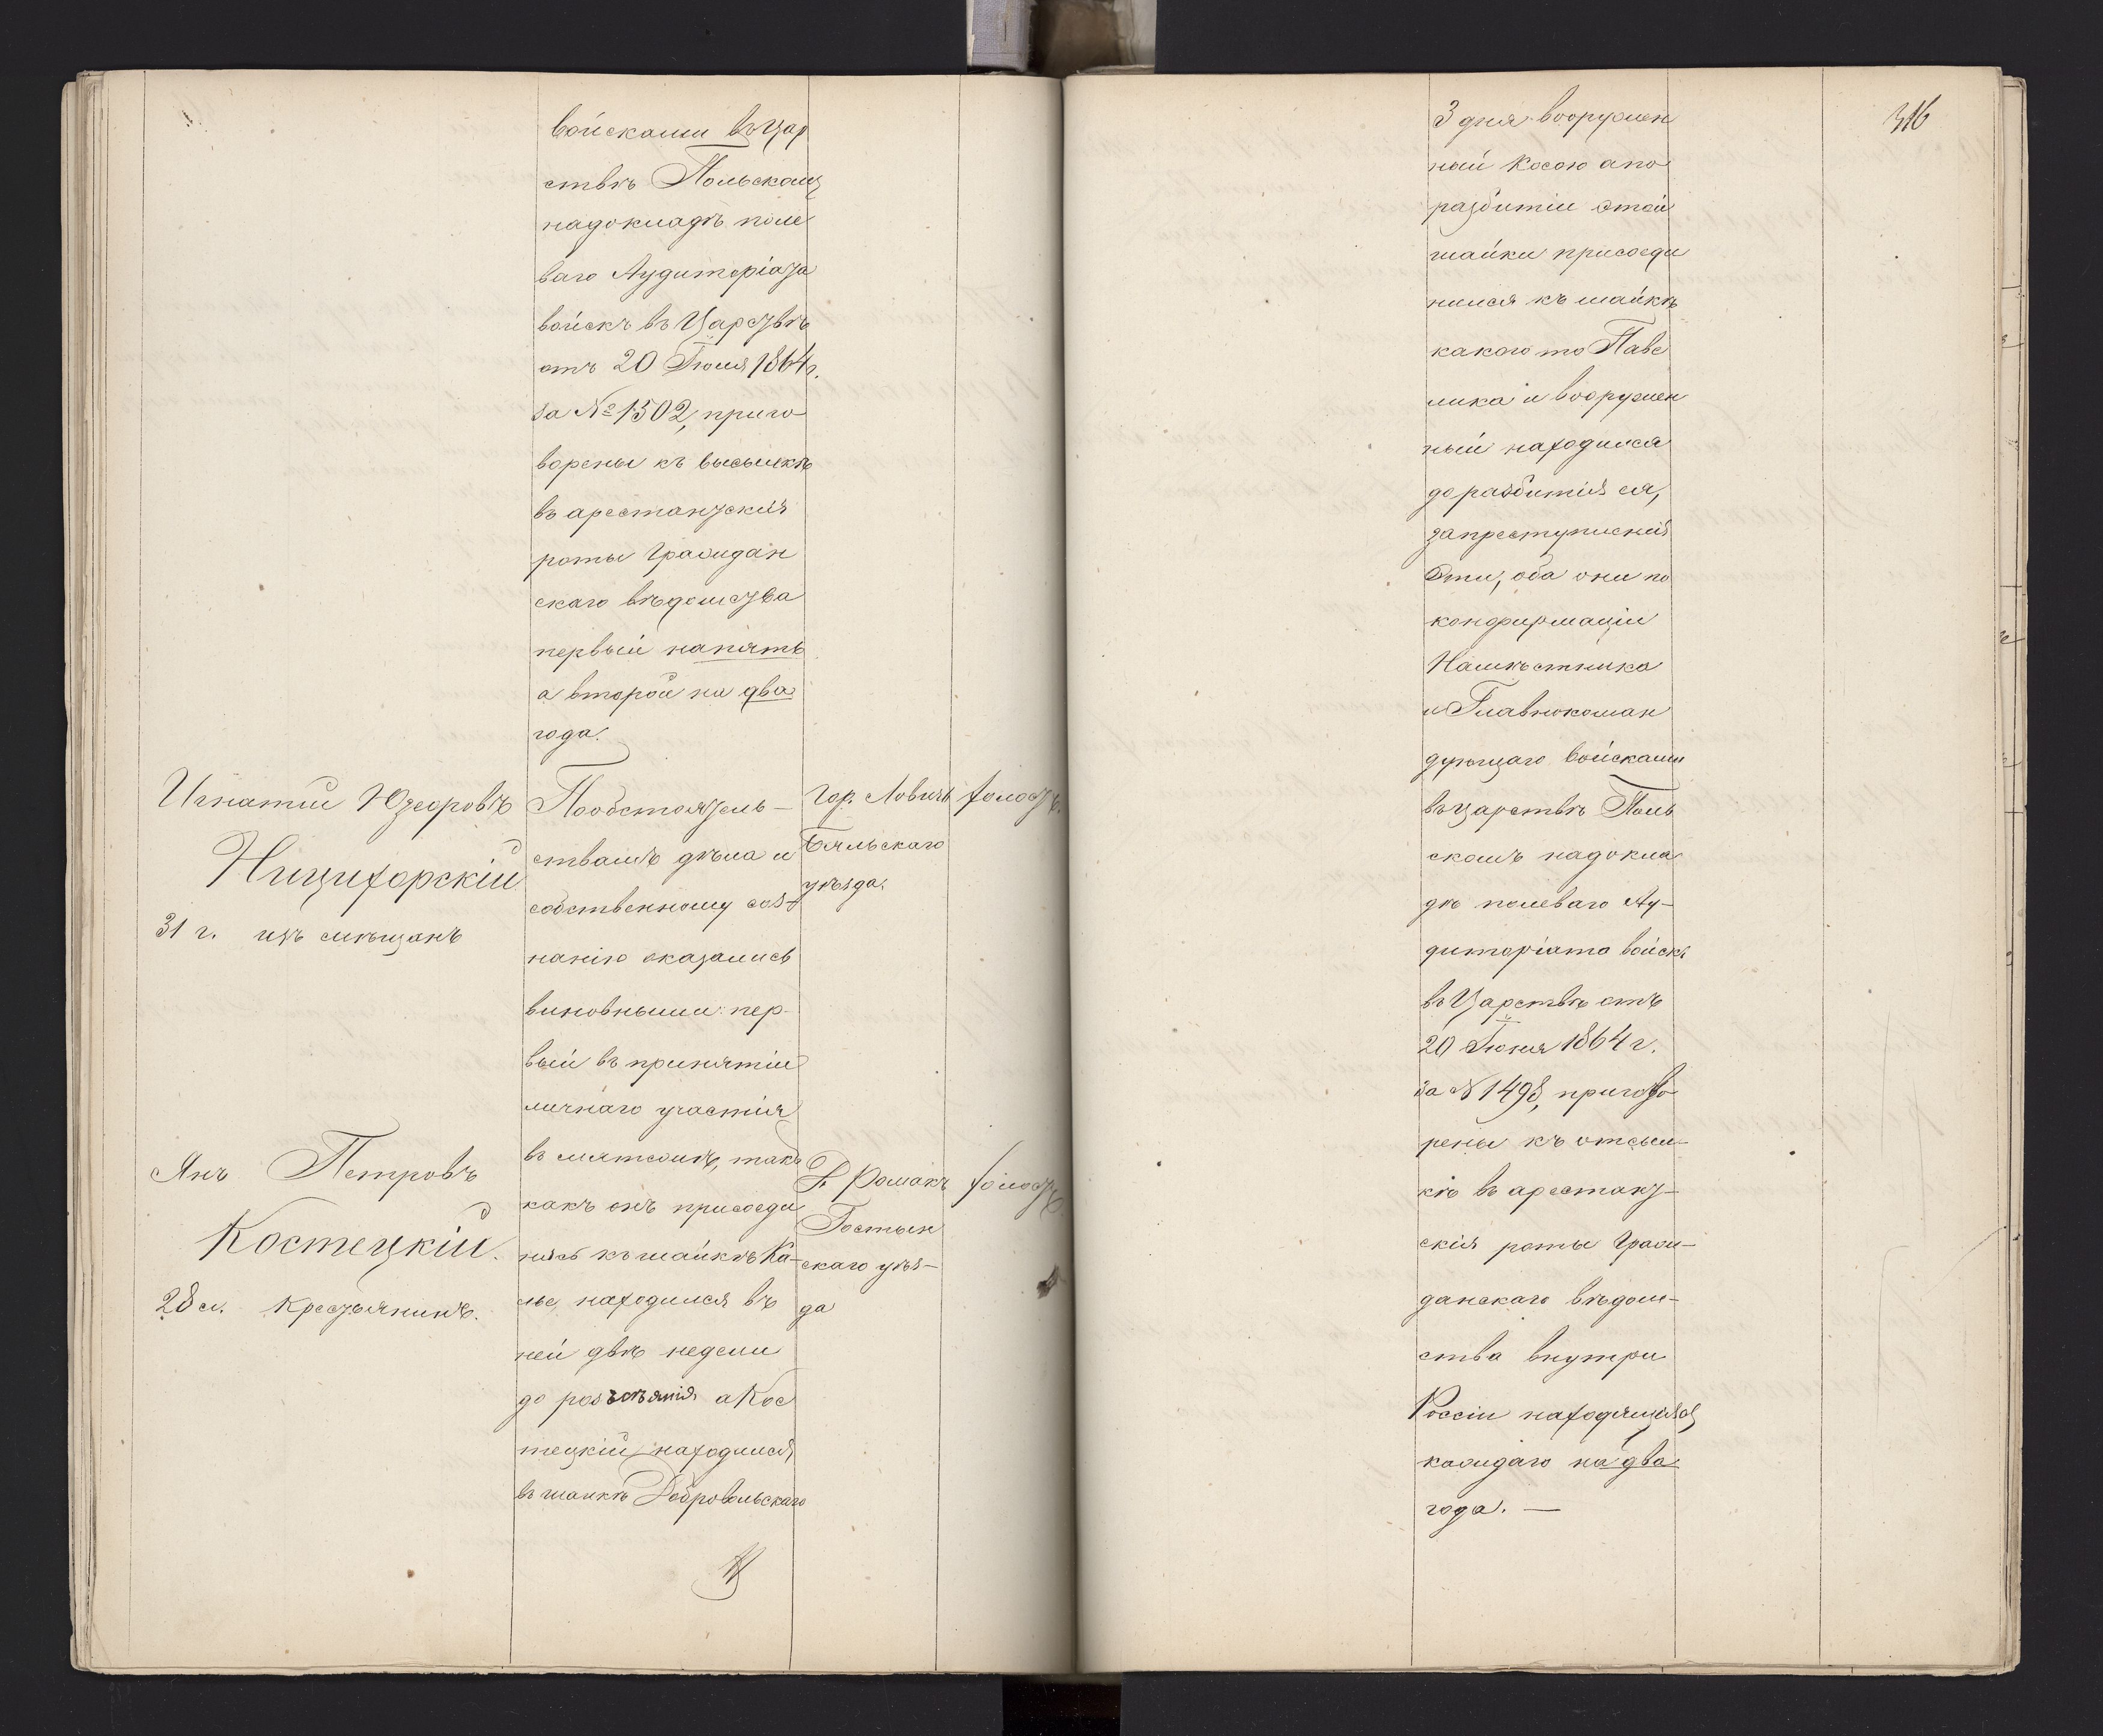 войсками въ Цар
ствѣ Польскомъ
на докладѣ поле
ваго Аудиторіата
войскъ въ Царствѣ
отъ 20 Іюля 1864 г.
за № 1502, приго
ворены къ высылкѣ
въ арестантскія
роты Граждан
скаго вѣдомства
первый на пять
а второй на два
года.
Игнатій Юзефовъ
Ницифорскій
31 г. изъ мѣщанъ
По обстоятель-
ствамъ дѣла и
собственному соз-
нанію оказались
виновными: пер-
вый въ принятіи
личнаго участія
въ мятежѣ, такъ
какъ онъ присоеди
нясь къ шайкѣ Ка-
лье находился въ
ней двѣ недели
до разсѣянія а Кос
тецкій находился
въ шайкѣ Добровольскаго
Гор. Ловичъ
Бяльскаго
уѣзда.
холостъ.
Янъ Петровъ
Костецкій.
28 л. крестьянинъ.
Д. Ромакъ
Гостын
скаго уѣз-
да
холостъ.
316
3 дня вооружен
ный косою а по
разбитіи этой
шайки присоеди
нился къ шайкѣ
какого то Паве
лика и вооружен
ный находился
до разбитія ея,
за преступленія
эти, оба они по
конфирмаціи
Намѣстника
и Главнокоман
дующаго войсками
въ царствѣ Поль
скомъ на докла
дѣ полеваго Ау-
диторіата войскъ
въ Царствѣ отъ
20 Іюня 1864 г.
за № 1498, пригово
рены къ отсыл-
кѣ въ арестант-
скія роты Граж-
данскаго вѣдом-
ства внутри
Россіи находящіяся
каждаго на два
года. —